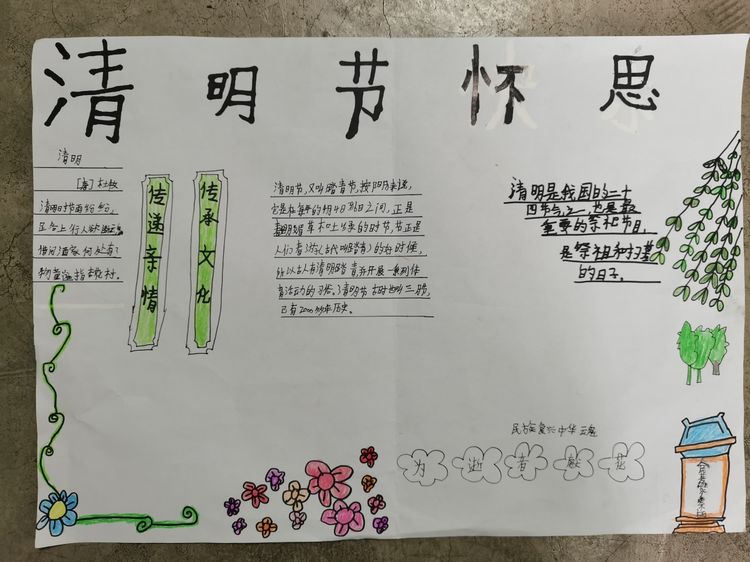 清明节怀思
清明
[唐]杜牧
清明时节雨纷纷,
路上行人欲断魂。
借问酒家何处有?
牧童遥指杏花村。
传递亲情
传承文化
清明节,又叫踏青节,按阳历来说,
它是在每年的4月4日至6日之间,正是
春光明媚草木吐绿的时节,正是
人们春游(古代叫踏青)的好时候,
所以古人有清明踏青,并开展一系列体
育活动的习俗。清明节古时也叫三月节,
已有2000多年历史。
清明是我国的二十
四节气之一,也是最
重要的祭祀节日,
是祭祖和扫墓
的日子。
民族复兴中华
为逝者献花